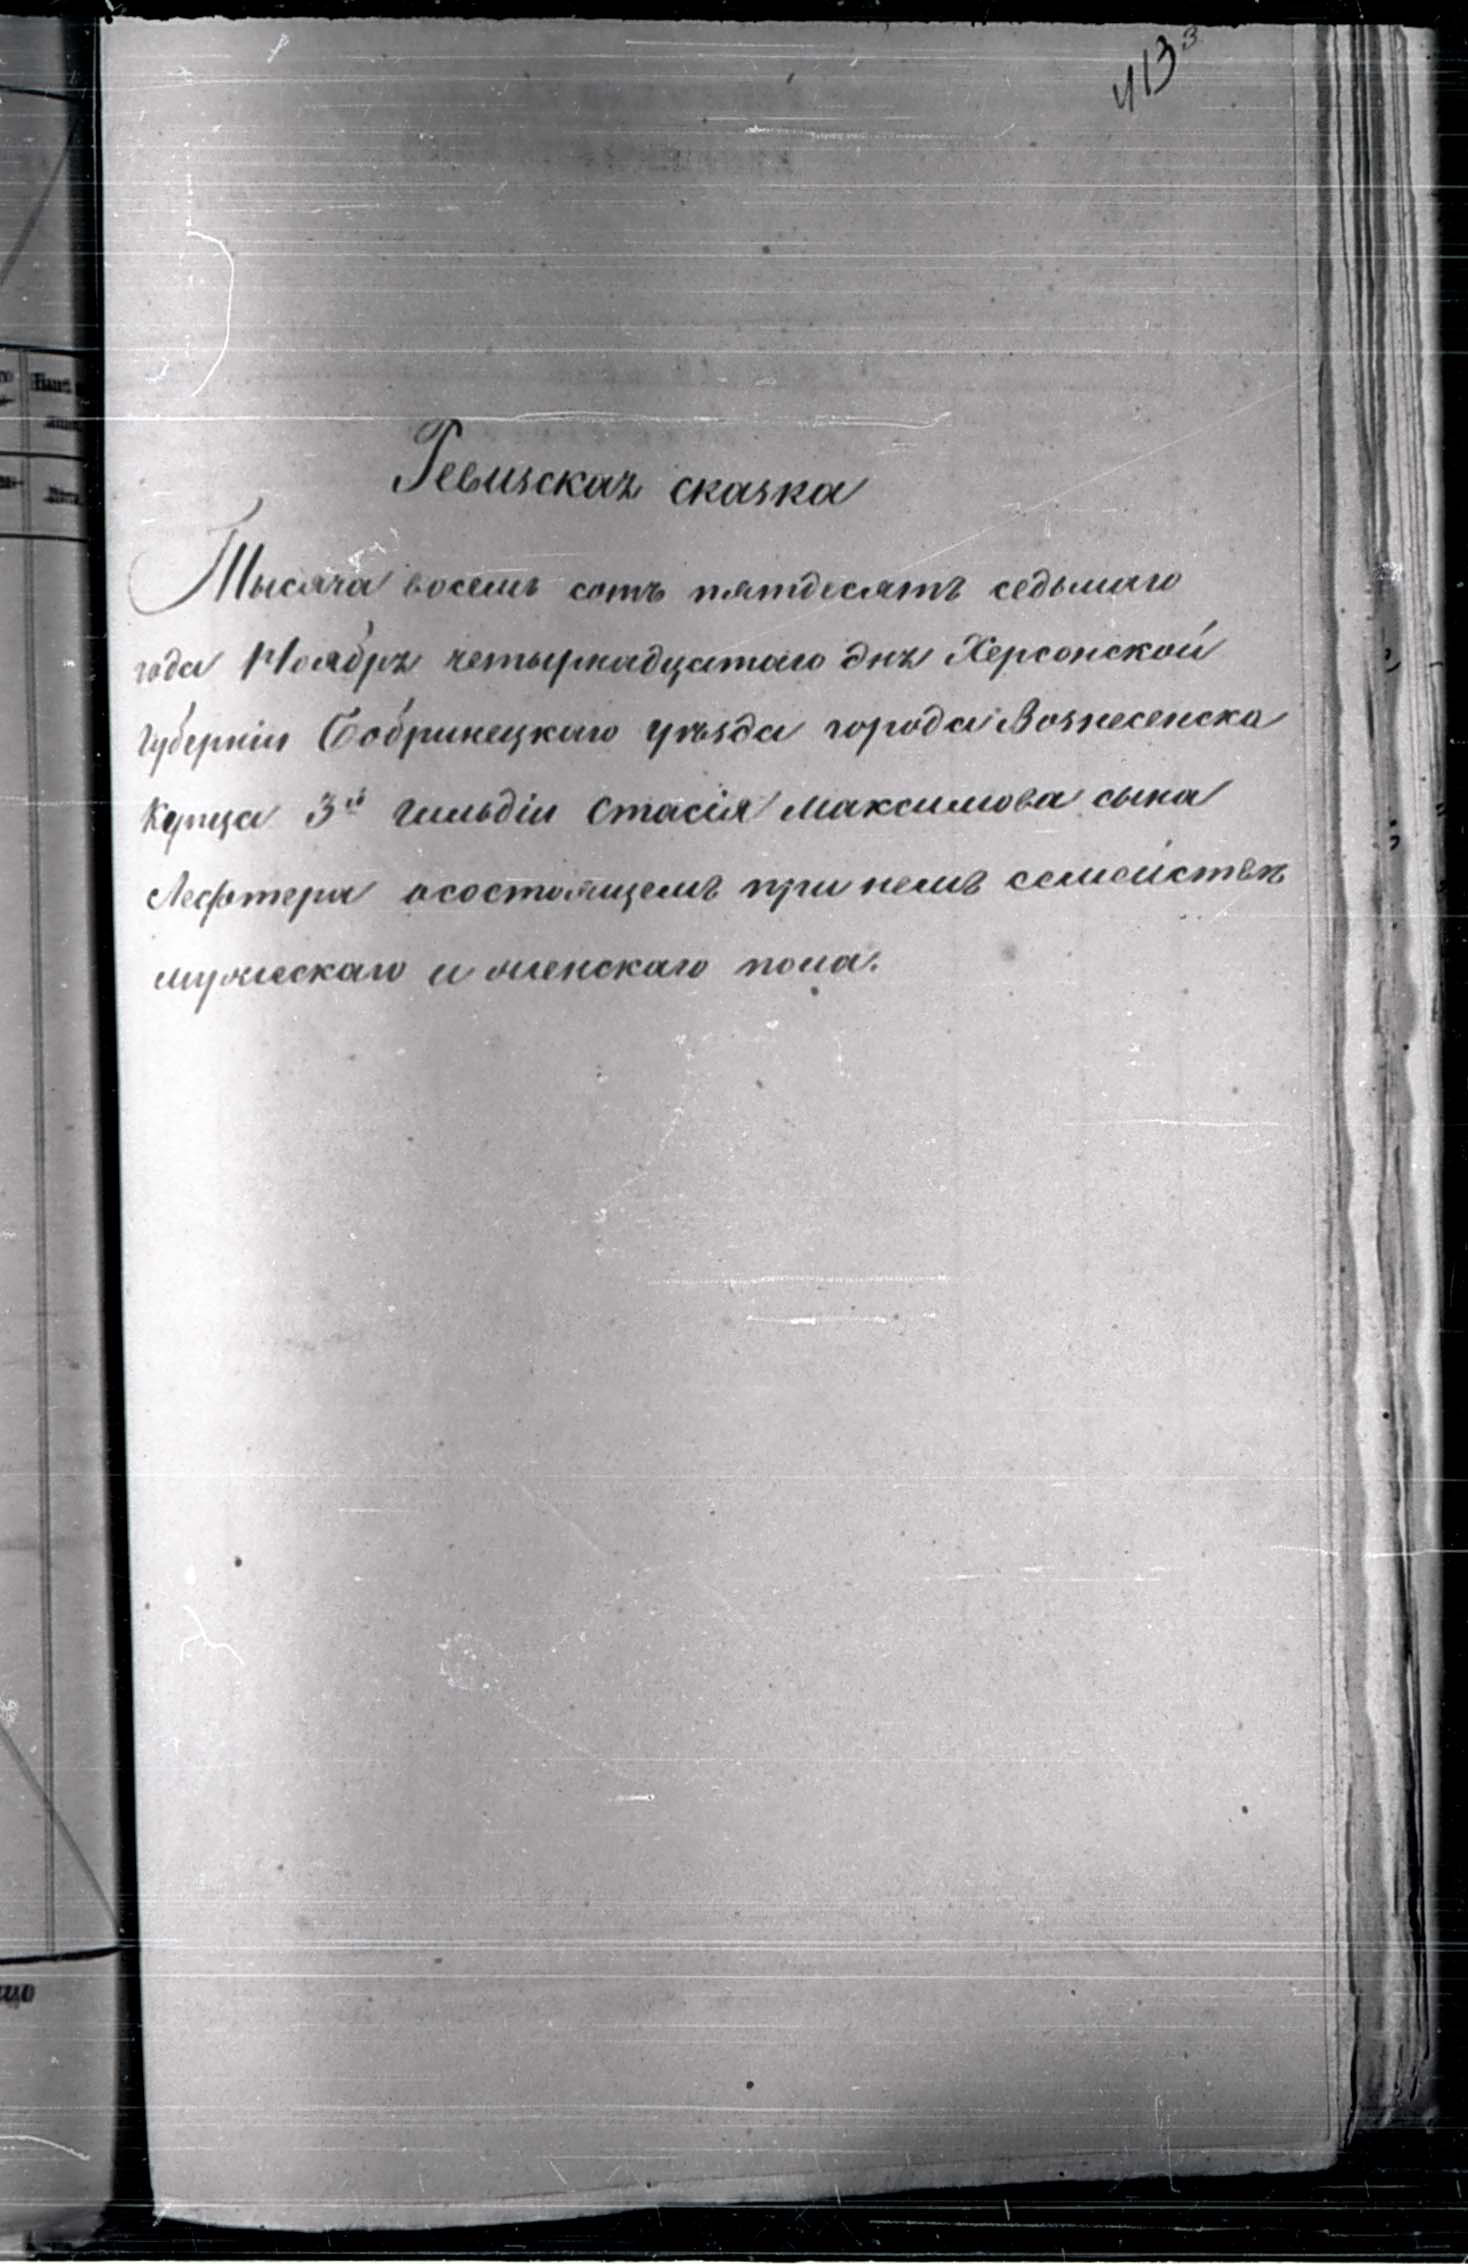 413
3
Ревизская сказка
Тысяча восемь сотъ пятдесятъ седьмаго
года Ноября четырнадцатаго дня Херсонской
Губерніи Бобринецкаго уѣзда города Вознесенска
Купца 3й гильдіи Стасія Максимова сына
Лефтера осостоящемъ при немъ семействѣ
мужескаго и женскаго пола.